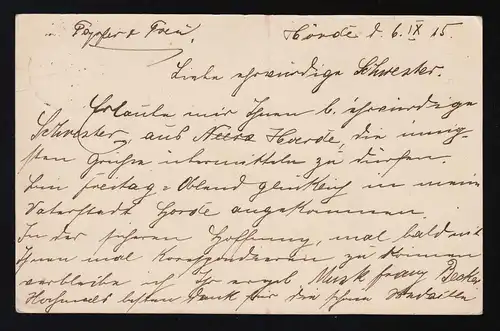 Hörde d. 6. IX 15.
Liebe ehrwürdige Schwester.
Erlaube mir Ihnen l. ehrwürdige
Schwester, aus Hoerde, die innig-
sten Grüße übermitteln zu dürfen.
Bin Freitag = Abend glücklich in meine
Vaterstadt Hörde angekommen.
In der sicheren Hoffnung, mal bald mit
Ihnen mal korrespondieren zu können
verbleibe ich Ihr ergeb. Musk Franz Becker
Hochmals besten Dank für die schöne Medaille